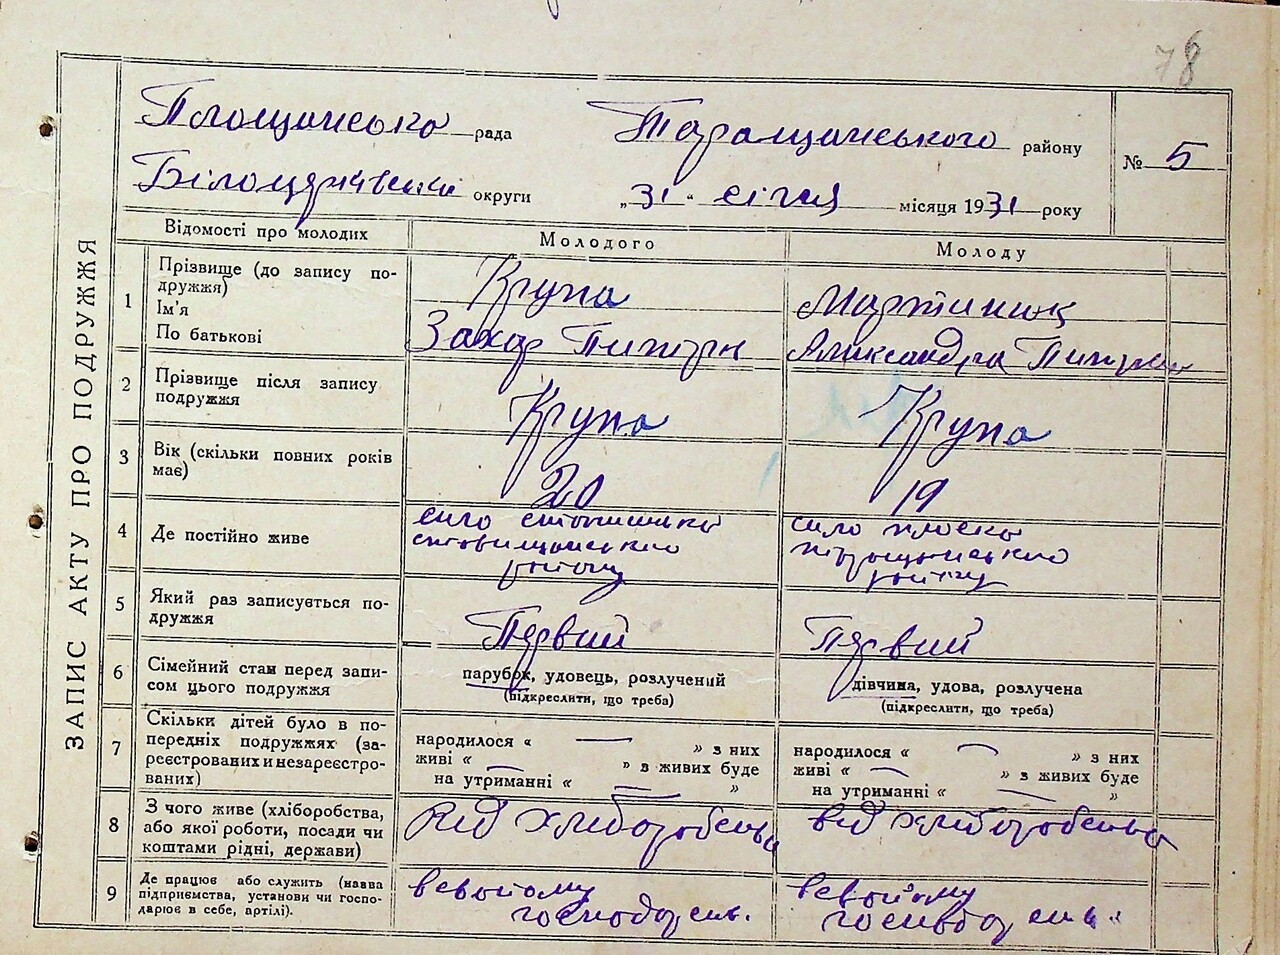 78
ЗАПИС АКТУ ПРО ПОДРУЖЖЯ
Площанська рада Таращанського району № 5
Білоцерківської округи „31" січня місяця 1931 року
Відомості про молодих Молодого Молоду
1 Прізвище (до запису подружжя) Крупа Мартинюк
Ім'я
По батькові Захар Питрів Александра
2 Прізвище після запису подружжя Крупа Крупа
3 Вік (скільки повних років має) 20 19
4 Де постійно живе село село плоска
ставищанського таращанського
району району
5 Який раз записується подружжя Первий Первий
6 Сімейний стан перед записом цього подружжя парубок, удовець, розлучений дівчина, удова, розлучена
(підкреслити, що треба) (підкреслити, що треба)
7 Скільки дітей було в попередніх подружжях (зареєстрованих и незареєстрованих) народилося « — » з них народилося « — » з них
живі « — » в живих буде живі « — » в живих буде
на утриманні « — » на утриманні « — »
8 З чого живе (хліборобства, або якої роботи, посади чи коштами рідні, держави) від хліборобства від хліборобства
9 Де працює або служить (назва підприємства, установи чи господарює в себе, артілі). всвойому всвойому
господарств. господарств.